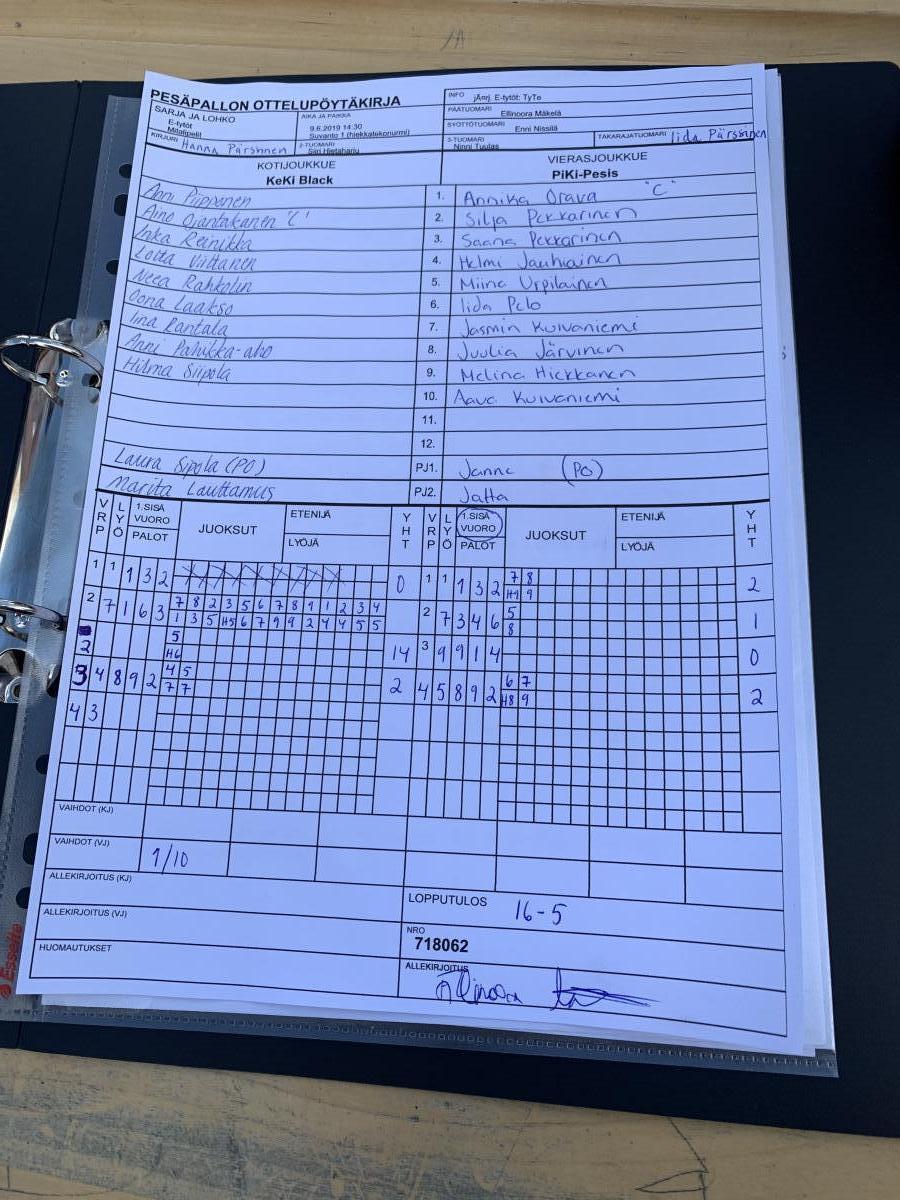 PESÄPALLON OTTELUPÖYTÄKIRJA
SARJA JA LOHKO
E-tytöt
Mitalipelit
AIKA JA PAIKKA
9.6.2019 14:30
Suvanto 1 (hiekkatekonurmi)
KIRJURI Hanna Pärssinen
2-TUOMARI
Siiri Hietaharju
INFO jÄnrj. E-tytöt: TyTe
PÄÄTUOMARI Ellinoora Mäkelä
SYÖTTÖTUOMARI Enni Nissilä
3-TUOMARI
Ninni Tuulas
TAKARAJATUOMARI Iida Pärssinen
KOTIJOUKKUE
KeKi Black
VIERASJOUKKUE
PiKi-Pesis
Anni Piipponen 1. Annika Orava "C"
Aino Ojantakanen "C" 2. Silja Pekkarinen
Inka Reinikka 3. Saana Pekkarinen
Lotta Virtanen 4. Helmi Jauhiainen
Neea Rahkolin 5. Miina Urpilainen
Oona Laakso 6. Iida Pelo
Iina Rantala 7. Jasmin Kuivaniemi
Anni Pahikka-aho 8. Juulia Järvinen
Hilma Siipola 9. Melina Hiekkanen
10. Aava Kuivaniemi
11.
12.
Laura Sipola (PO) PJ1. Janne (PO)
Marita Lauttamus PJ2. Jatta
VRP LYÖ 1.SISÄ VUORO PALOT JUOKSUT ETENIJÄ LYÖJÄ YHT VRP LYÖ 1.SISÄ VUORO PALOT JUOKSUT ETENIJÄ LYÖJÄ YHT
1 1 1 3 2 0 1 1 1 3 2 7 8 2
H1 9
2 7 1 6 3 7 8 2 3 5 6 7 8 9 1 2 3 4 2 7 3 4 6 5 1
1 3 5 H5 6 7 9 9 2 4 4 5 5 8
2 5 14 3 9 9 1 4 0
H6
3 4 8 9 2 4 5 2 4 5 8 9 2 6 7 2
7 7 H8 9
4 3
VAIHDOT (KJ)
VAIHDOT (VJ) 1/10
ALLEKIRJOITUS (KJ)
LOPPUTULOS 16-5
ALLEKIRJOITUS (VJ)
NRO
718062
HUOMAUTUKSET
ALLEKIRJOITUS
Esselte